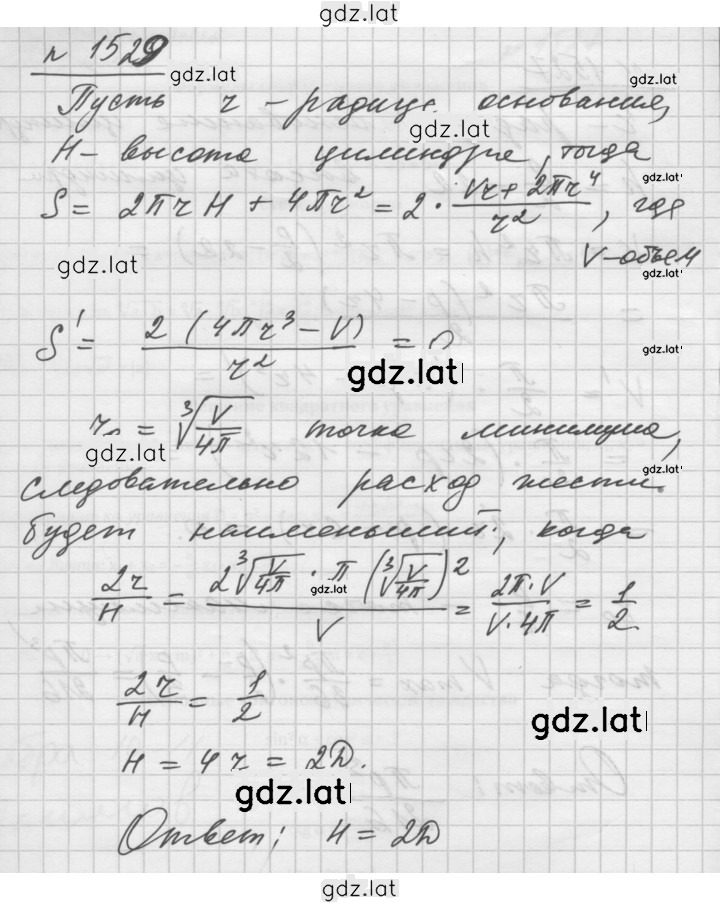 gdz.lat
n 1529
gdz.lat
gdz.lat
Пусть r - радиус основания,
gdz.lat
H - высота цилиндра, тогда
gdz.lat
S = 2πrH + 4πr² = 2 · (Vr + 2πr⁴)/r², где
gdz.lat
V - объем
gdz.lat
S' = 2(4πr³ - V)/r² = 0
gdz.lat
gdz.lat
r₀ = ∛(V/4π) точка минимума,
gdz.lat
gdz.lat
следовательно расход жести
будет наименьший, когда
2r/H = 2∛(V/4π) · π(∛(V/4π))²/V = 2π·V/V·4π = 1/2
gdz.lat
gdz.lat
2r/H = 1/2
gdz.lat
H = 4r = 2D.
gdz.lat
Ответ: H = 2D
gdz.lat